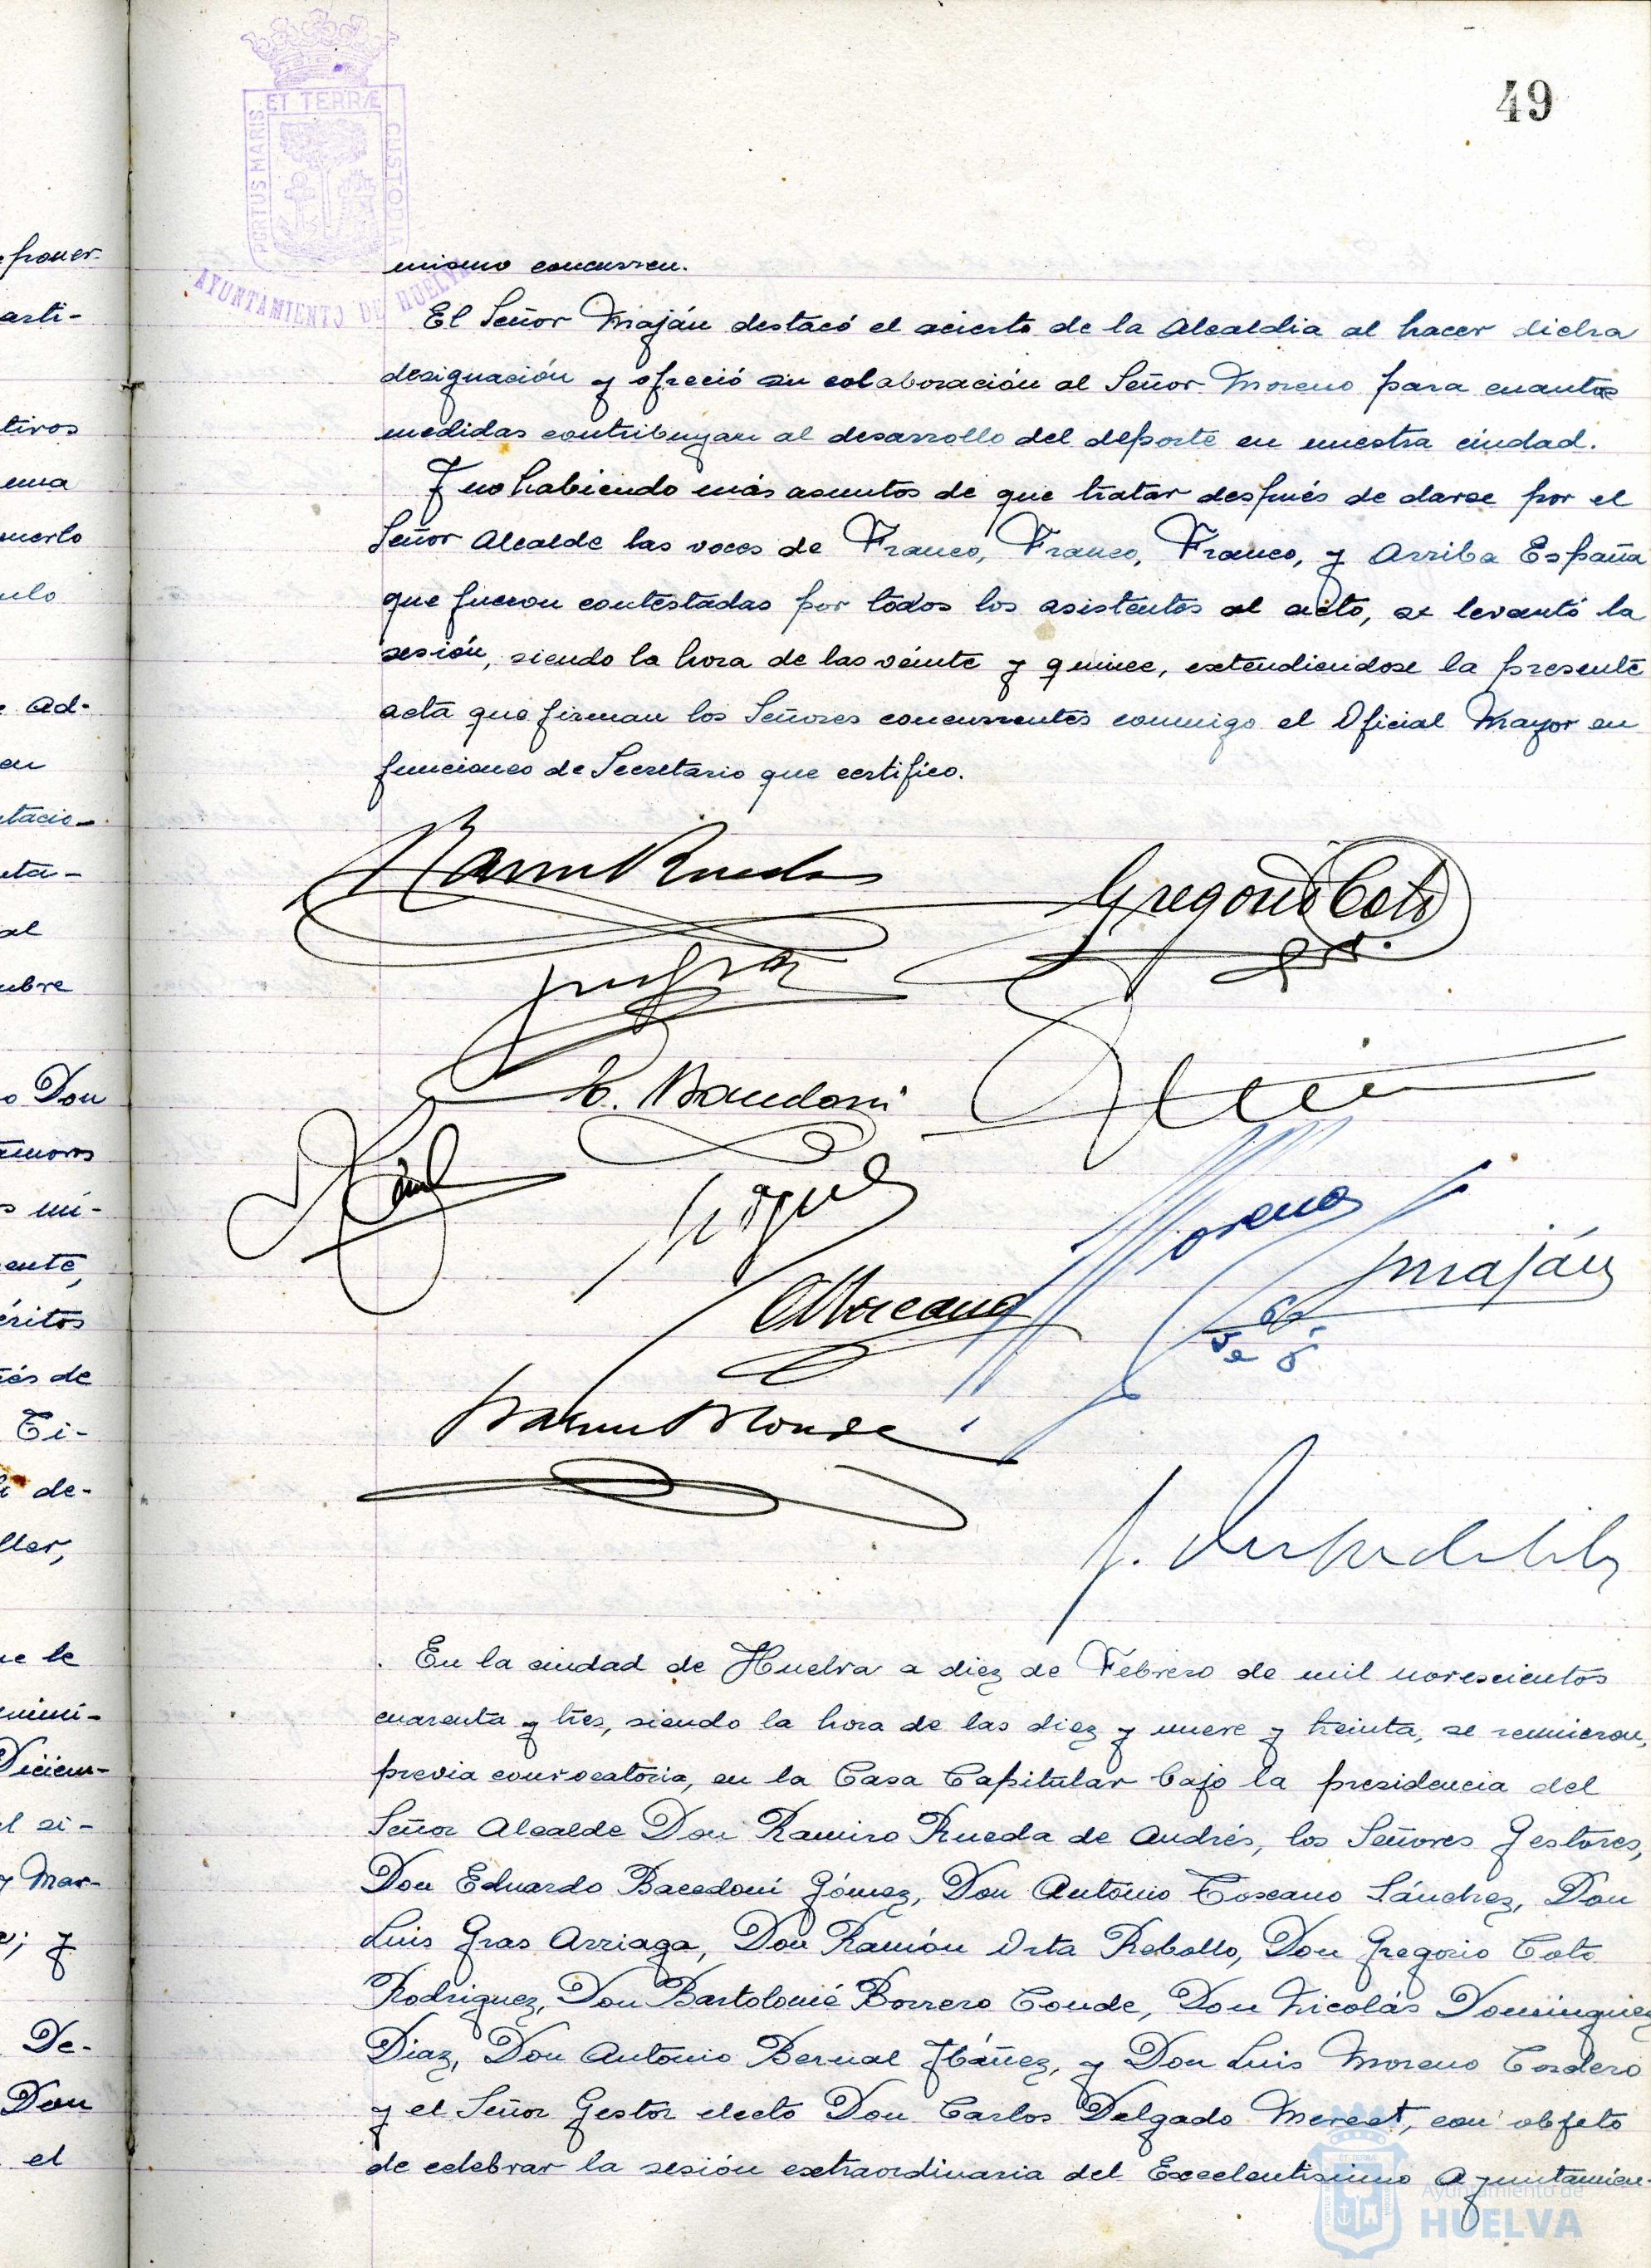 49
ET TERRÆ
PORTUS MARIS
CUSTODIA
AYUNTAMIENTO DE HUELVA
mismo concurren.
El Señor Maján destacó el acierto de la Alcaldia al hacer dicha
designación y ofreció su colaboración al Señor Moreno para cuantas
medidas contribuyan al desarrollo del deporte en nuestra ciudad.
Y no habiendo más asuntos de que tratar después de darse por el
Señor Alcalde las voces de Franco, Franco, Franco, y Arriba España
que fueron contestadas por todos los asistentes al acto, se levantó la
sesión, siendo la hora de las veinte y quince, extendiendose la presente
acta que firman los Señores concurrentes conmigo el Oficial Mayor en
funciones de Secretario que certifico.
Gregorio Coto
Moreno
Maján
En la ciudad de Huelva a diez de Febrero de mil novescientos
cuarenta y tres, siendo la hora de las diez y nueve y treinta, se reunieron,
previa convocatoria, en la Casa Capitular bajo la presidencia del
Señor Alcalde Don Ramiro Rueda de Andrés, los Señores Gestores,
Don Eduardo Bacedoni Gómez, Don Antonio Toscano Sánchez, Don
Luis Gras Arriaga, Don Ramón Orta Rebollo, Don Gregorio Coto
Rodriguez, Don Bartolomé Borrero Conde, Don Nicolás Dominguez
Diaz, Don Antonio Bernal Ybáñez, y Don Luis Moreno Cordero
y el Señor Gestor electo Don Carlos Delgado Mereet, con objeto
de celebrar la sesión extraordinaria del Excelentisimo Ayuntamien-
Ayuntamiento de
HUELVA